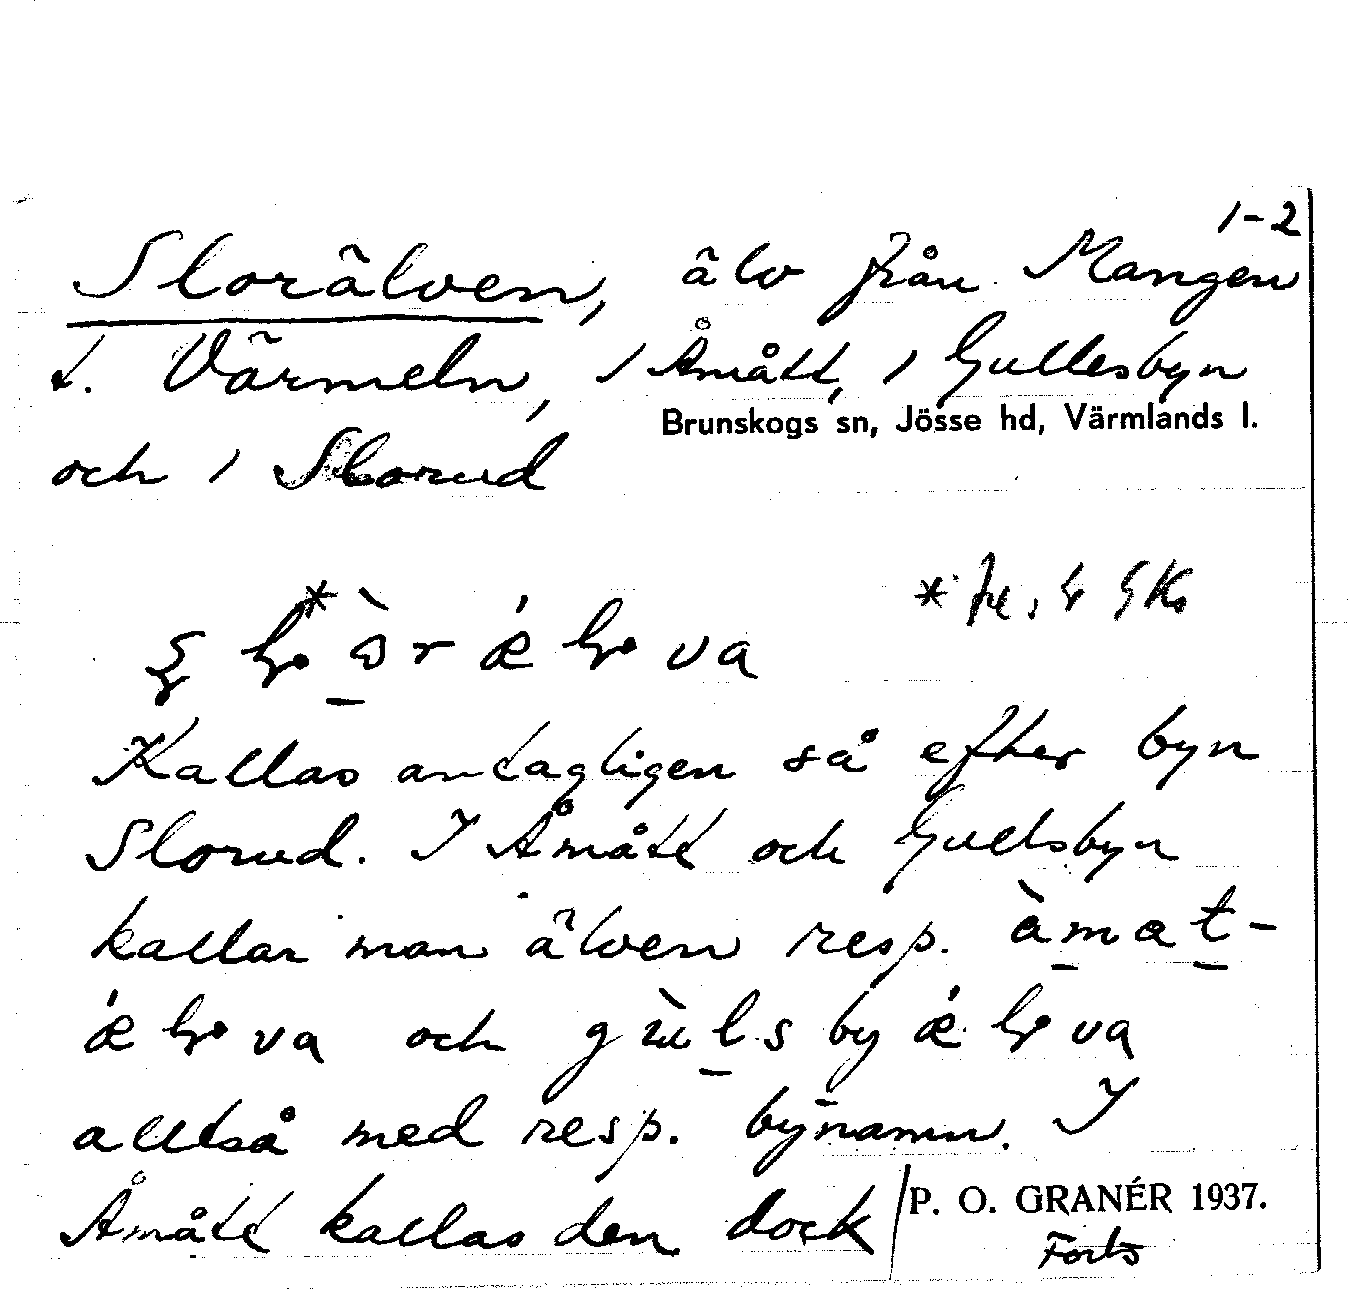 1-2
Slorälven, älv från Mangen
t. Värmeln, i Åmått, i Gullesbyn
Brunskogs sn, Jösse hd, Värmlands l.
och i Slorud
Kallas antagligen så efter byn
Slorud. I Åmått och Gullsbyn
kallar man älven resp. àmat-
och
alltså med resp. bynamn. I
Åmått kallas den dock
P. O. GRANÉR 1937.
Forts